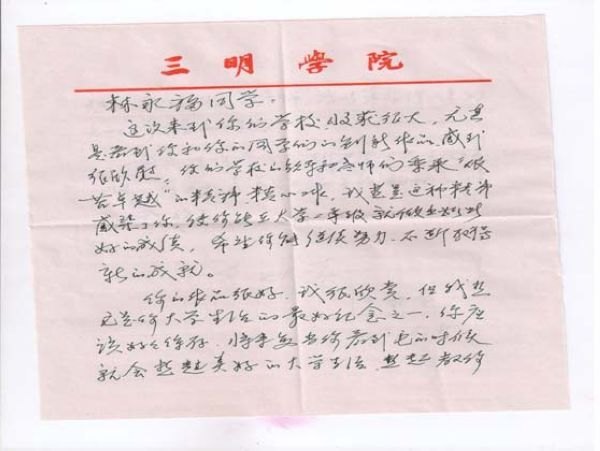 三明学院
林永福同学：
这次来到你们学校，收获很大，尤其
是看到你和你的同学们的创新作品，感到
很欣慰。你们学校的领导和老师们秉承“艰
苦卓越”的精神，我想是这种精神
感染了你，使你能在大学一年级就做出如此
好的成绩，希望你能继续努力，不断取得
新的成就。
你的作品很好，我很欣赏，但我想
它是你大学生活的最好纪念之一，你应
该好好保存，将来每当你看到它的时候
就会想起美好的大学生活，想起教你